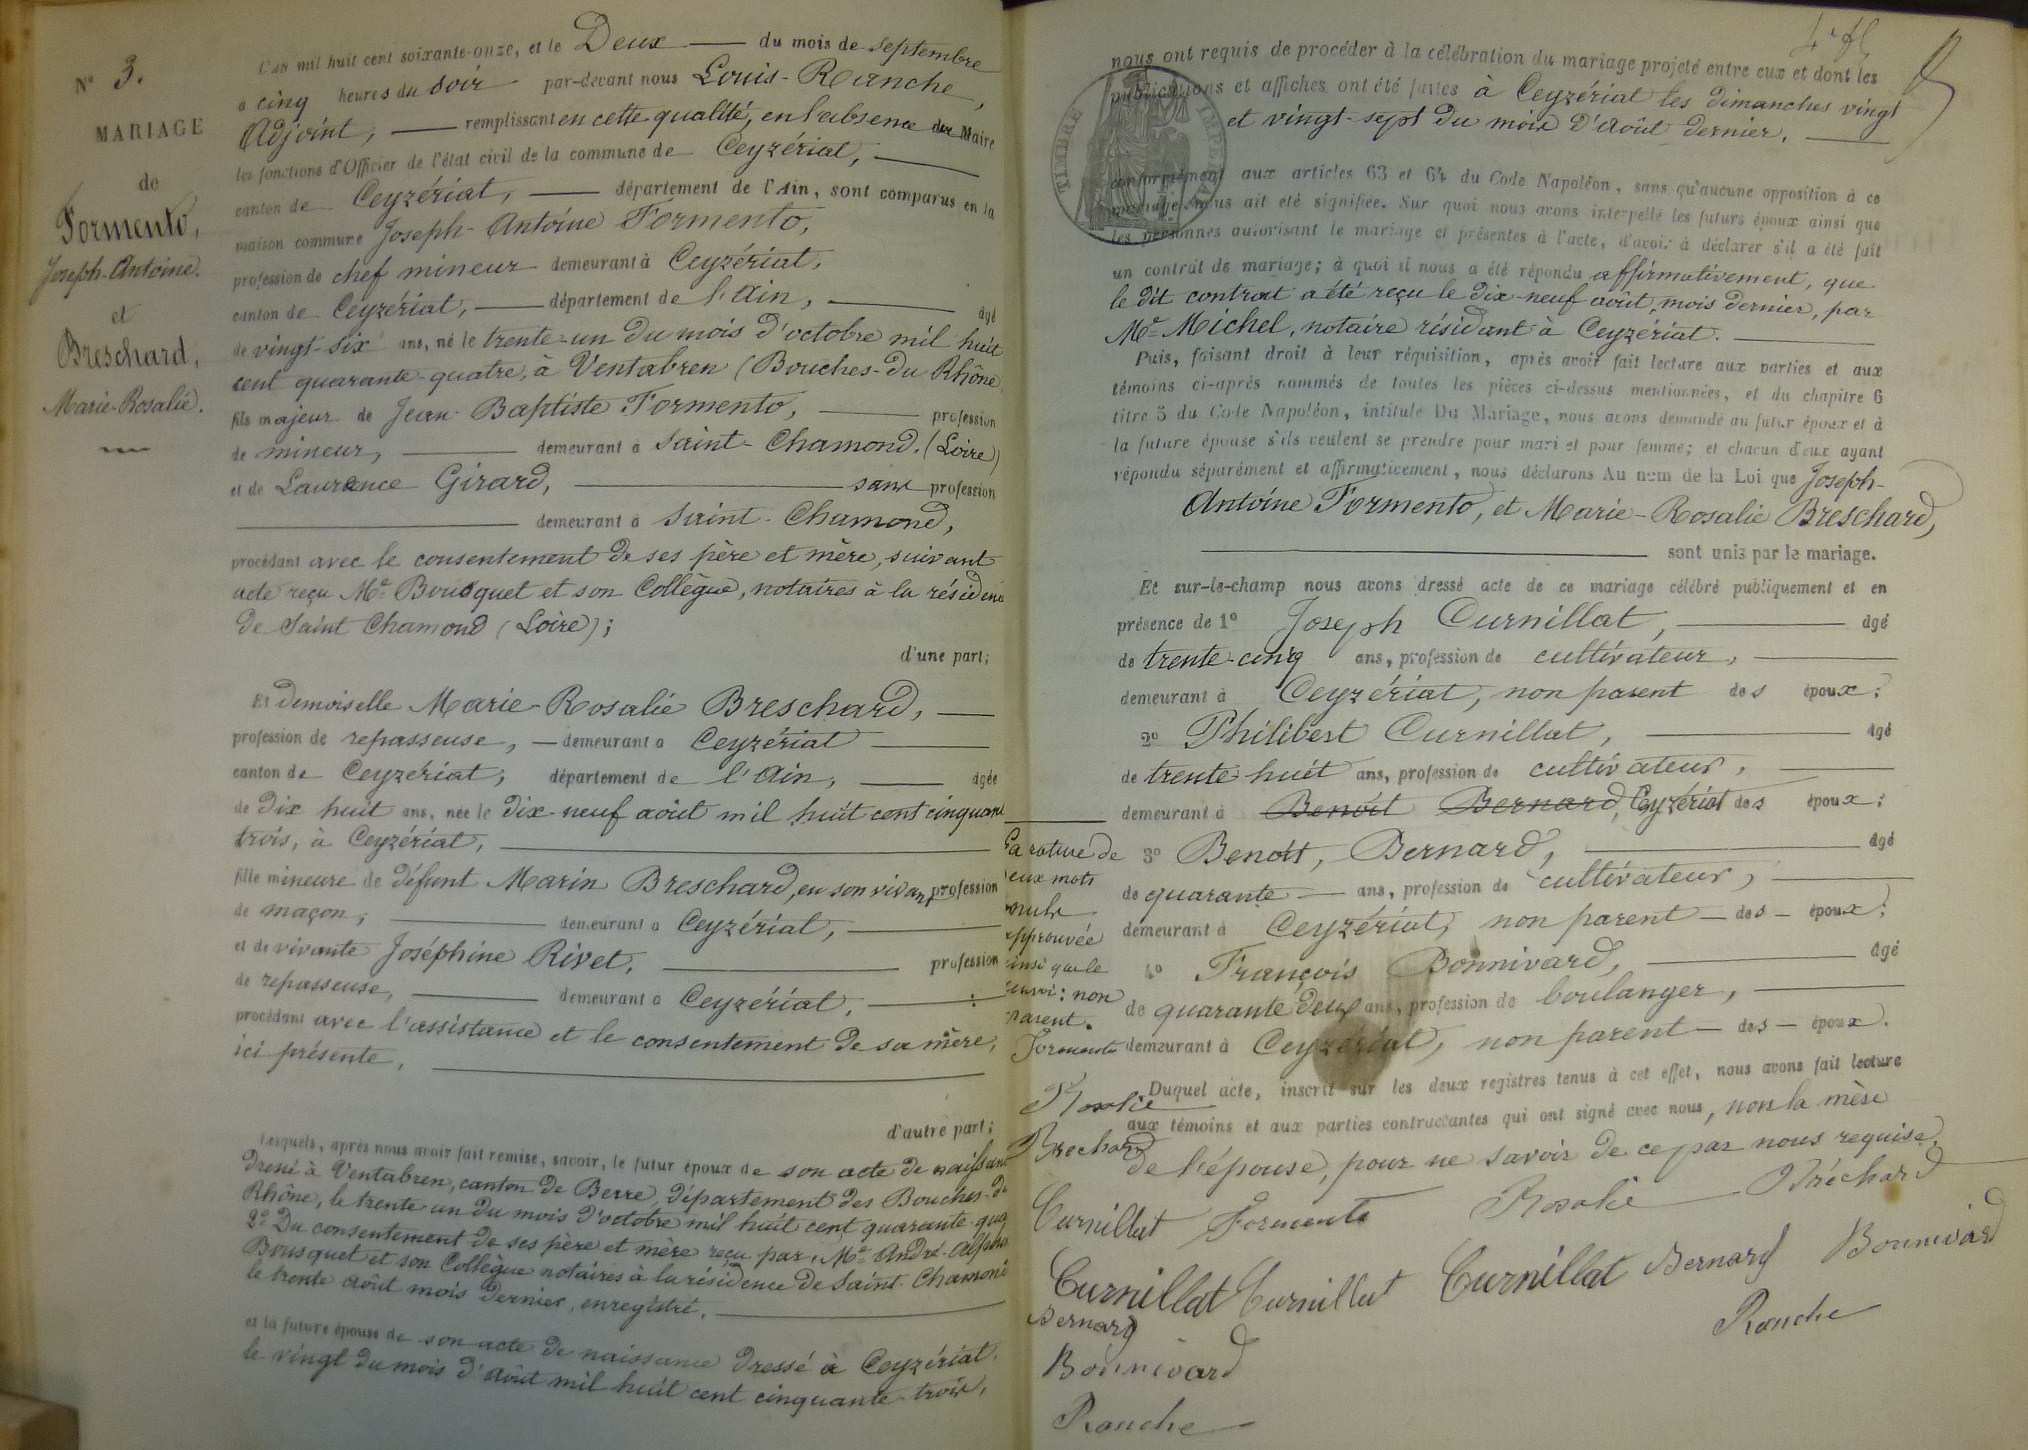 N° 3.
MARIAGE
de
Formento,
Joseph-Antoine.
et
Breschard,
Marie-Rosalie.
L'an mil huit cent soixante-onze, et le Deux du mois de septembre
à cinq heures du soir par-devant nous Louis-Ranche,
Adjoint, remplissant en cette qualité, en l'absence du Maire
les fonctions d'Officier de l'état civil de la commune de Ceyzériat,
canton de Ceyzériat, département de l'Ain, sont comparus en la
maison commune Joseph-Antoine Formento,
profession de chef mineur demeurant à Ceyzériat,
canton de Ceyzériat, département de l'Ain, âgé
de vingt-six ans, né le trente-un du mois d'octobre mil huit
cent quarante-quatre, à Ventabren (Bouches-du Rhône
fils majeur de Jean Baptiste Formento, profession
de mineur, demeurant à Saint-Chamond. (Loire)
et de Laurence Girard, sans profession
demeurant à Saint-Chamond,
procédant avec le consentement de ses père et mère, suivant
acte reçu Me Bousquet et son Collègue, notaires à la résidence
de Saint Chamond (Loire);
d'une part;
Et demoiselle Marie-Rosalie Breschard,
profession de repasseuse, demeurant à Ceyzériat
canton de Ceyzériat, département de l'Ain, âgée
de dix huit ans, née le dix-neuf août mil huit cent cinquante
trois, à Ceyzériat,
fille mineure de défunt Marin Breschard, en son vivant profession
de maçon, demeurant à Ceyzériat,
et de vivante Joséphine Rivet, profession
de repasseuse, demeurant à Ceyzériat,
procédant avec l'assistance et le consentement de sa mère,
ici présente,
d'autre part;
Lesquels, après nous avoir fait remise, savoir, le futur époux de son acte de naissance
dressé à Ventabren, canton de Berre, département des Bouches-du
Rhône, le trente un du mois d'octobre mil huit cent quarante-qua
2° Du consentement de ses père et mère reçu par Me André-Alphonse
Bousquet et son Collègue notaires à la résidence de Saint-Chamond
le trente août mois dernier, enregistré.
et la future épouse de son acte de naissance dressé à Ceyzériat,
le vingt du mois d'août mil huit cent cinquante-trois,
nous ont requis de procéder à la célébration du mariage projeté entre eux et dont les
publications et affiches ont été faites à Ceyzériat les dimanches vingt
et vingt-sept du mois d'Août dernier.
TIMBRE IMPERIAL
conformément aux articles 63 et 64 du Code Napoléon, sans qu'aucune opposition à ce
mariage nous ait été signifiée. Sur quoi nous avons interpellé les futurs époux ainsi que
les personnes autorisant le mariage et présentes à l'acte, d'avoir à déclarer s'il a été fait
un contrat de mariage; à quoi il nous a été répondu affirmativement, que
le dit contrat a été reçu le dix-neuf août, mois dernier, par
Me Michel, notaire résidant à Ceyzériat.
Puis, faisant droit à leur réquisition, après avoir fait lecture aux parties et aux
témoins ci-après nommés de toutes les pièces ci-dessus mentionnées, et du chapitre 6
titre 5 du Code Napoléon, intitulé Du Mariage, nous avons demandé au futur époux et à
la future épouse s'ils veulent se prendre pour mari et pour femme; et chacun d'eux ayant
répondu séparément et affirmativement, nous déclarons Au nom de la Loi que Joseph-
Antoine Formento, et Marie-Rosalie Breschard,
sont unis par le mariage.
Et sur-le-champ nous avons dressé acte de ce mariage célébré publiquement et en
présence de 1° Joseph Curnillat, âgé
de trente-cinq ans, profession de cultivateur,
demeurant à Ceyzériat, non parent des époux;
2° Philibert Curnillat, âgé
de trente huit ans, profession de cultivateur,
demeurant à Benoit Bernard, Ceyzériat des époux;
3° Benoit, Bernard, âgé
de quarante ans, profession de cultivateur,
demeurant à Ceyzériat, non parent des époux;
4° François Bonnivard, âgé
de quarante deux ans, profession de boulanger,
demeurant à Ceyzériat, non parent des époux.
La rature de
deux mots
nuls
approuvée
ainsi que le
renvoi: non
parent.
Formento
Rosalie
Brechard
Duquel acte, inscrit sur les deux registres tenus à cet effet, nous avons fait lecture
aux témoins et aux parties contractantes qui ont signé avec nous, non la mère
de l'épouse, pour ne savoir de ce par nous requise.
Curnillat Formento Rosalie Bréchard
Curnillat Curnillat Curnillat Bernard Bonnivard
Bernard Ranche
Bonnivard
Ranche